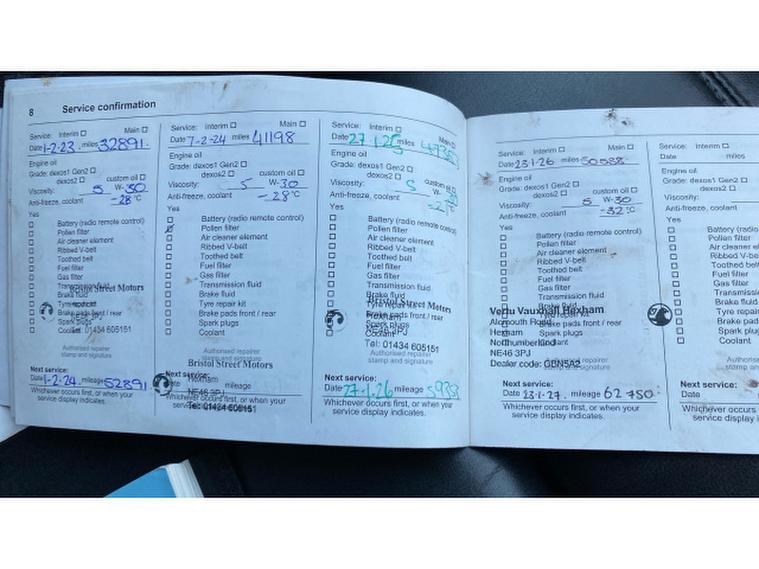 8 Service confirmation
Service: Interim Main
Date 1-2-23. miles 32891.
Engine oil
Grade: dexos1 Gen2
dexos2 custom oil
Viscosity: 5 W-30
Anti-freeze, coolant -28°C
Yes
Battery (radio remote control)
Pollen filter
Air cleaner element
Ribbed V-belt
Toothed belt
Fuel filter
Gas filter
Transmission fluid
Brake fluid
Bristol Street Motors
Tyre repair kit
Brake pads front / rear
Spark plugs
Coolant 01434 605151
Authorised repairer
stamp and signature
Next service:
Date 1-2-24. mileage 52891
Whichever occurs first, or when your
service display indicates.
Service: Interim Main
Date 7-2-24 miles 41198
Engine oil
Grade: dexos1 Gen2
dexos2 custom oil
Viscosity: 5 W-30
Anti-freeze, coolant -28°C
Yes
Battery (radio remote control)
Pollen filter
Air cleaner element
Ribbed V-belt
Toothed belt
Fuel filter
Gas filter
Transmission fluid
Brake fluid
Tyre repair kit
Brake pads front / rear
Spark plugs
Coolant
Authorised repairer
stamp and signature
Bristol Street Motors
Next service:
Hexham
Date mileage
NE46 3PJ
Whichever occurs first, or when your
Tel: 01434 605151
service display indicates.
Service: Interim Main
Date 27.1.25 miles
Engine oil
Grade: dexos1 Gen2
dexos2 custom oil
Viscosity: 5 W-
Anti-freeze, coolant
Yes
Battery (radio remote control)
Pollen filter
Air cleaner element
Ribbed V-belt
Toothed belt
Fuel filter
Gas filter
Transmission fluid
Brake fluid
Bristol Street Motors
Tyre repair kit
Brake pads front / rear
Hexham
Spark plugs
Coolant
Tel: 01434 605151
Authorised repairer
stamp and signature
Next service:
Date 27.1.26 mileage
Whichever occurs first, or when your
service display indicates.
Service: Interim Main
Date 23.1.26 miles
Engine oil
Grade: dexos1 Gen2
dexos2 custom oil
Viscosity: 5 W-30
Anti-freeze, coolant -32°C
Yes
Battery (radio remote control)
Pollen filter
Air cleaner element
Ribbed V-belt
Toothed belt
Fuel filter
Gas filter
Transmission fluid
Brake fluid
Vertu Vauxhall Hexham
Tyre repair kit
Alemouth Road
Brake pads front / rear
Hexham
Spark plugs
Northumberland
Coolant
NE46 3PJ
Authorised repairer
stamp and signature
Dealer code:
Next service:
Date 23.1.27. mileage 62 750
Whichever occurs first, or when your
service display indicates.
Service: Interim
Date miles
Engine oil
Grade: dexos1 Gen2
dexos2
Viscosity:
Anti-freeze, coolant
Yes
Battery (radio
Pollen filter
Air cleaner
Ribbed V-be
Toothed belt
Fuel filter
Gas filter
Transmission
Brake fluid
Tyre repair
Brake pads
Spark plugs
Coolant
Authorised
stamp and
Next service:
Date
Whichever occurs
service display